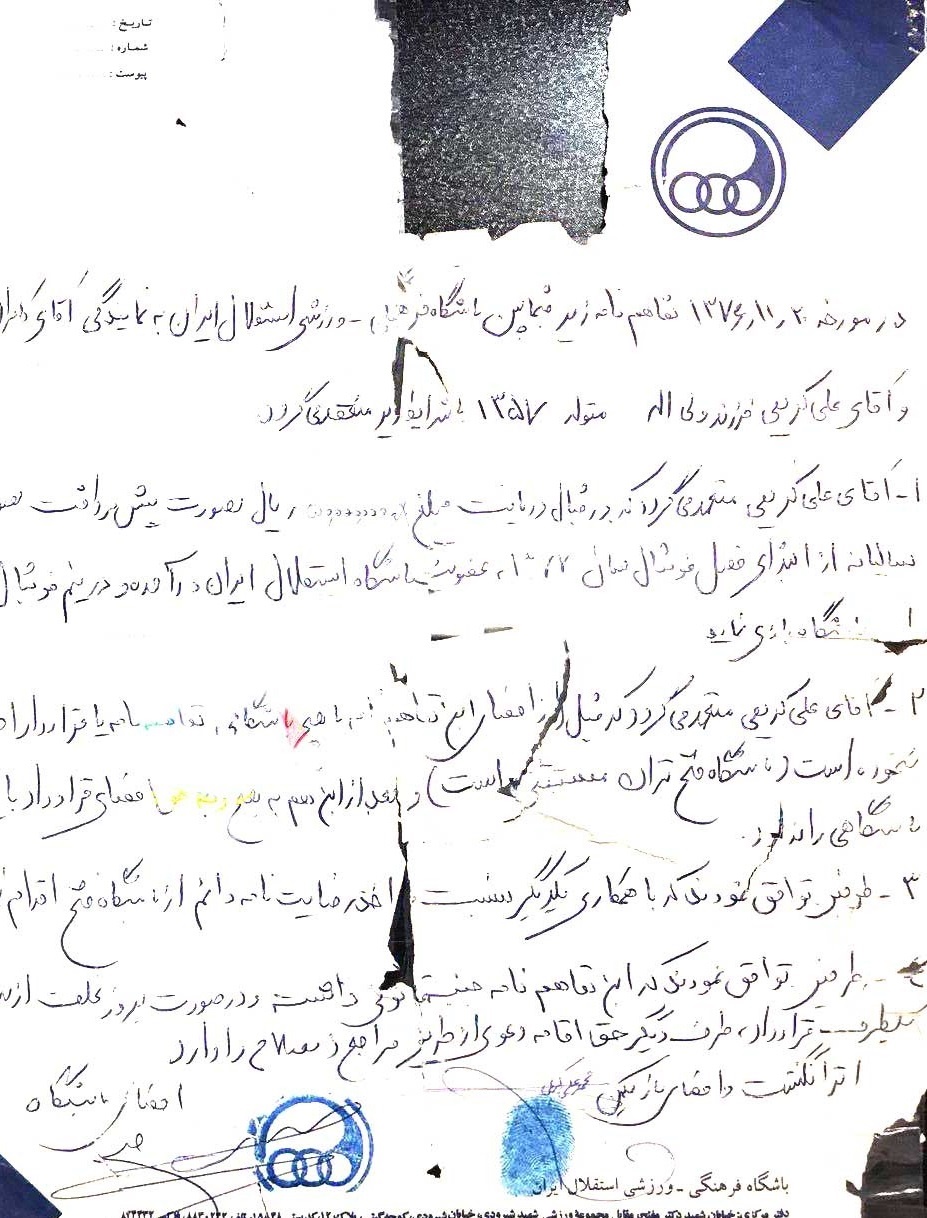 تاریخ :
شماره :
پیوست :
در مورخه ۱۳۷۶/۱۱/۳۰ تفاهم نامه زیر فیمابین باشگاه فرهنگی - ورزشی استقلال ایران به نمایندگی آقای
و آقای علی کریمی فرزند ولی اله متولد ۱۳۵۷ با شرایط زیر منعقد می گردد
۱- آقای علی کریمی متعهد می گردد که در قبال دریافت مبلغ ریال بصورت پیش پرداخت
سالیانه از ابتدای فصل فوتبال سال به عضویت باشگاه استقلال ایران در آمده و در تیم فوتبال
باشگاه بازی نماید
۲- آقای علی کریمی متعهد می گردد که قبل از امضای این تفاهم نامه با هیچ باشگاهی، تفاهم نامه یا قرارداد
ننموده است (باشگاه فتح تهران مستثنی است) و بعد از این هم به هیچ وجه حق امضای قرارداد با
باشگاهی را ندارد.
۳- طرفین توافق نمودند که با همکاری یکدیگر نسبت اخذ رضایت نامه دائم از باشگاه فتح اقدام
۴- طرفین توافق نمودند که این تفاهم نامه قانونی داشته و در صورت بروز تخلف از
یکطرف قرارداد، طرف دیگر حق اقامه دعوی از طریق مراجع ذیصلاح را دارد
اثر انگشت و امضای بازیکن
امضای باشگاه
باشگاه فرهنگی - ورزشی استقلال ایران